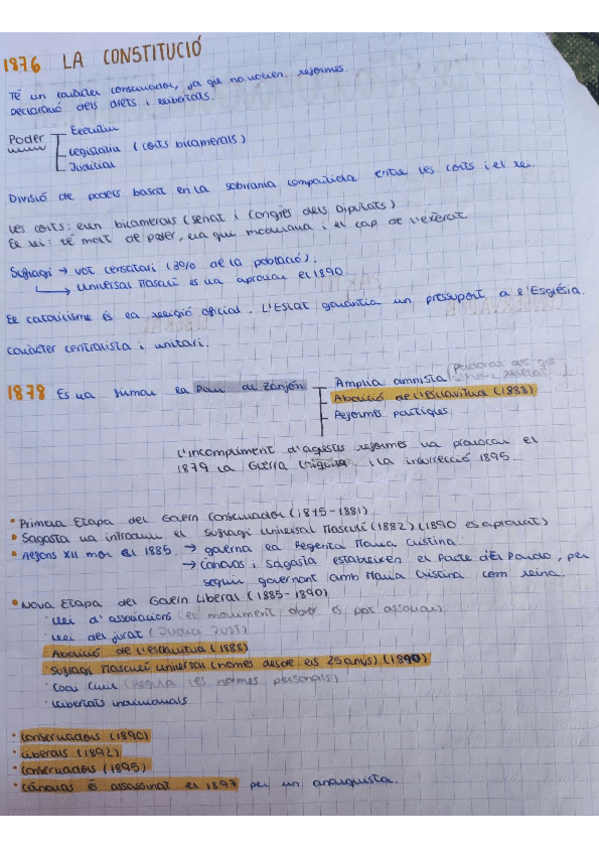 1876 LA CONSTITUCIÓ
Té un caràcter conservador, ja que no volien reformes.
Declaració dels drets i llibertats.
Poder
Executiu
Legislatiu (Corts bicamerals)
Judicial
Divisió de poders basat en la sobirania compartida entre les corts i el rei.
Les corts: eren bicamerals (senat i Congrés dels Diputats)
El rei: té molt de poder, era qui moderava i el cap de l'exèrcit
Sufragi → vot censatari (3% de la població).
Universal Masculí es va aprovar el 1890.
El catolicisme és la religió oficial. L'Estat garantia un pressupost a l'Església.
Caràcter centralista i unitari.
1878 Es va firmar la Pau de Zanjón
Amplia amnistia (
Abolició de l'esclavitud (1888)
Reformes polítiques
L'incompliment d'aquestes reformes va provocar el
1879 la Guerra Chiquita i la insurrecció 1895
• Primera Etapa del Govern Conservador (1875-1881)
• Sagasta va introduir el Sufragi Universal Masculí (1882) (1890 es aprovat)
• Alfons XII mor el 1885. → governa la Regenta Maria Cristina.
→ Cánovas i Sagasta estableixen el Pacte del Pardo, per
seguir governant amb Maria Cristina com reina.
• Nova Etapa del Govern Liberal (1885-1890)
· Llei d'associacions (el moviment obrer es pot associar)
· Llei del jurat (Judici Just)
· Abolició de l'esclavitud (1888)
· Sufragi Masculí Universal (només desde els 25 anys) (1890)
· Codi Civil (Regula les normes personals)
· Llibertats individuals
• Conservadors (1890)
• Liberals (1892)
• Conservadors (1895)
• Cánovas és assassinat el 1897 per un anarquista.